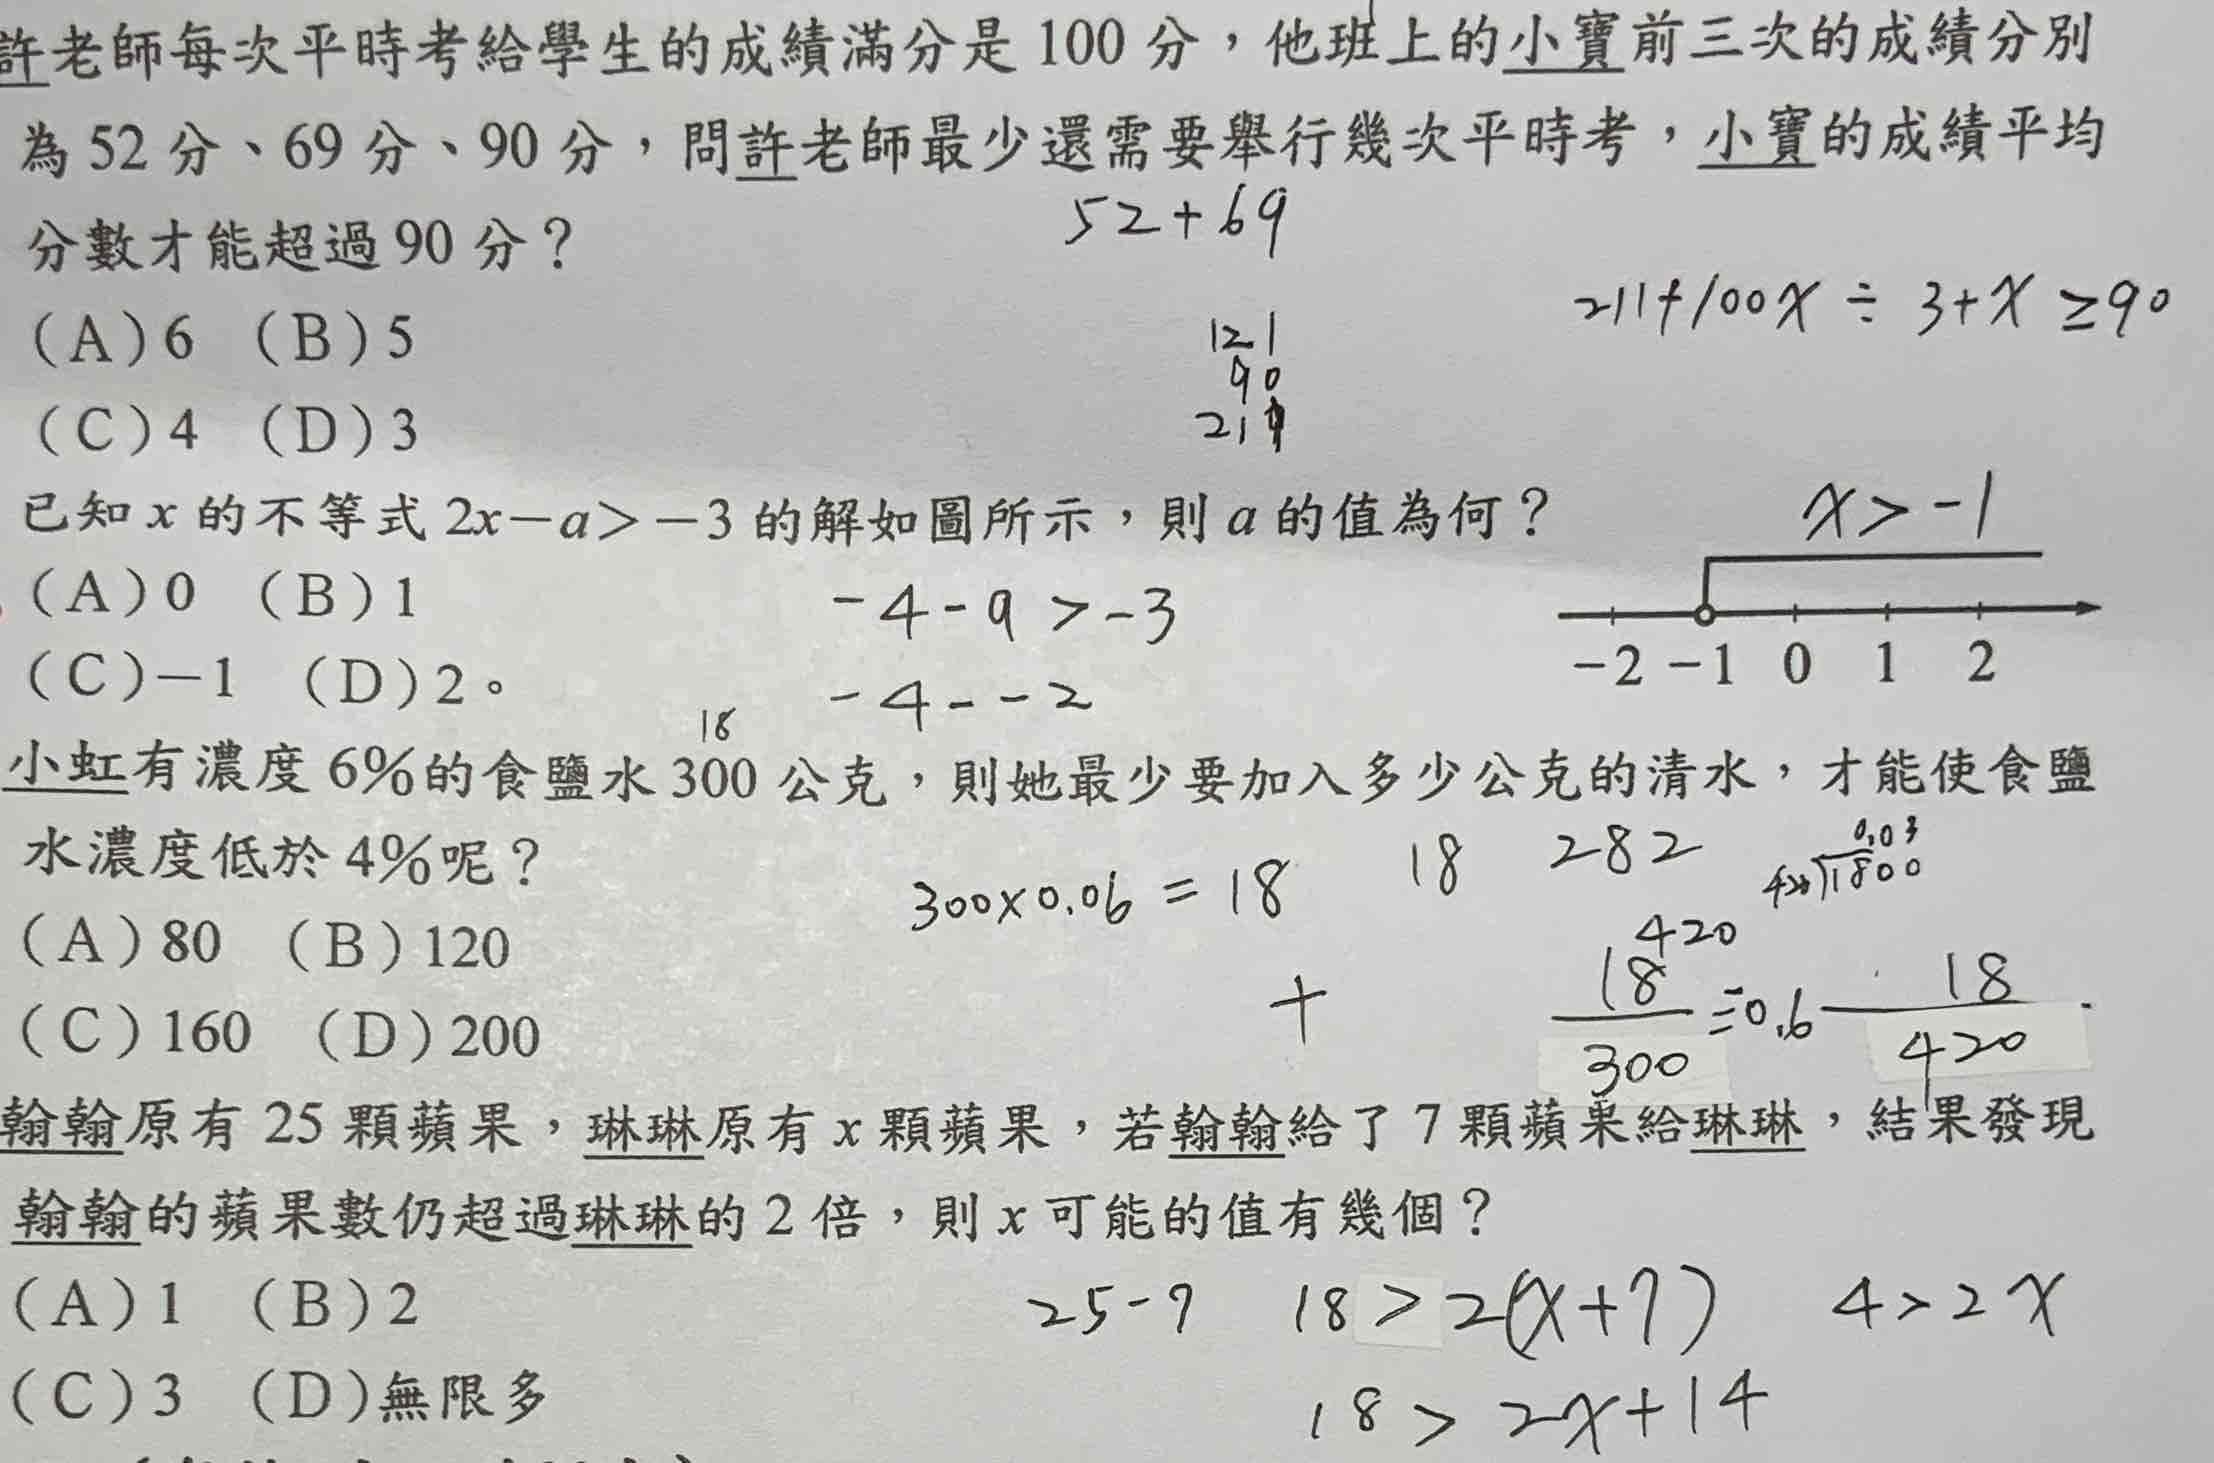 許老師每次平時考給學生的成績滿分是 100 分，他班上的小寶前三次的成績分別
為 52 分、69 分、90 分，問許老師最少還需要舉行幾次平時考，小寶的成績平均
分數才能超過 90 分？
52+69
(A) 6 (B) 5
121
90
211+100x ÷ 3+x ≥90
(C) 4 (D) 3
已知 x 的不等式 2x－a＞－3 的解如圖所示，則 a 的值為何？
x > -1
(A) 0 (B) 1
-4-a > -3
(C)－1 (D) 2。
-4--2
－2 －1 0 1 2
18
小虹有濃度 6%的食鹽水 300 公克，則她最少要加入多少公克的清水，才能使食鹽
水濃度低於 4%呢？
300×0.06 = 18
18 282
0.03
1800
(A) 80 (B) 120
420
18
300
=0.6
18
420
+
(C) 160 (D) 200
翰翰原有 25 顆蘋果，琳琳原有 x 顆蘋果，若翰翰給了 7 顆蘋果給琳琳，結果發現
翰翰的蘋果數仍超過琳琳的 2 倍，則 x 可能的值有幾個？
(A) 1 (B) 2
25-7 18 > 2(x+7) 4>2x
(C) 3 (D)無限多
18 > 2x+14